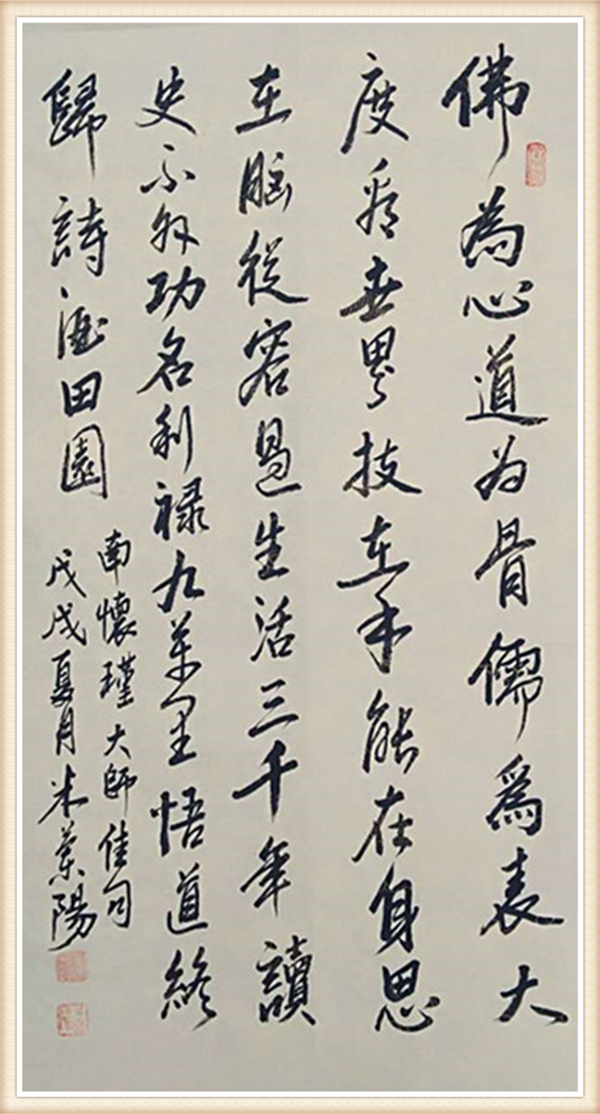 佛為心道为骨儒爲表大
度看世界技在手能在身思
在脑從容過生活三千年讀
史不外功名利禄九萬里悟道終
歸詩酒田園
南懷瑾大師佳句
戊戌夏月米陽